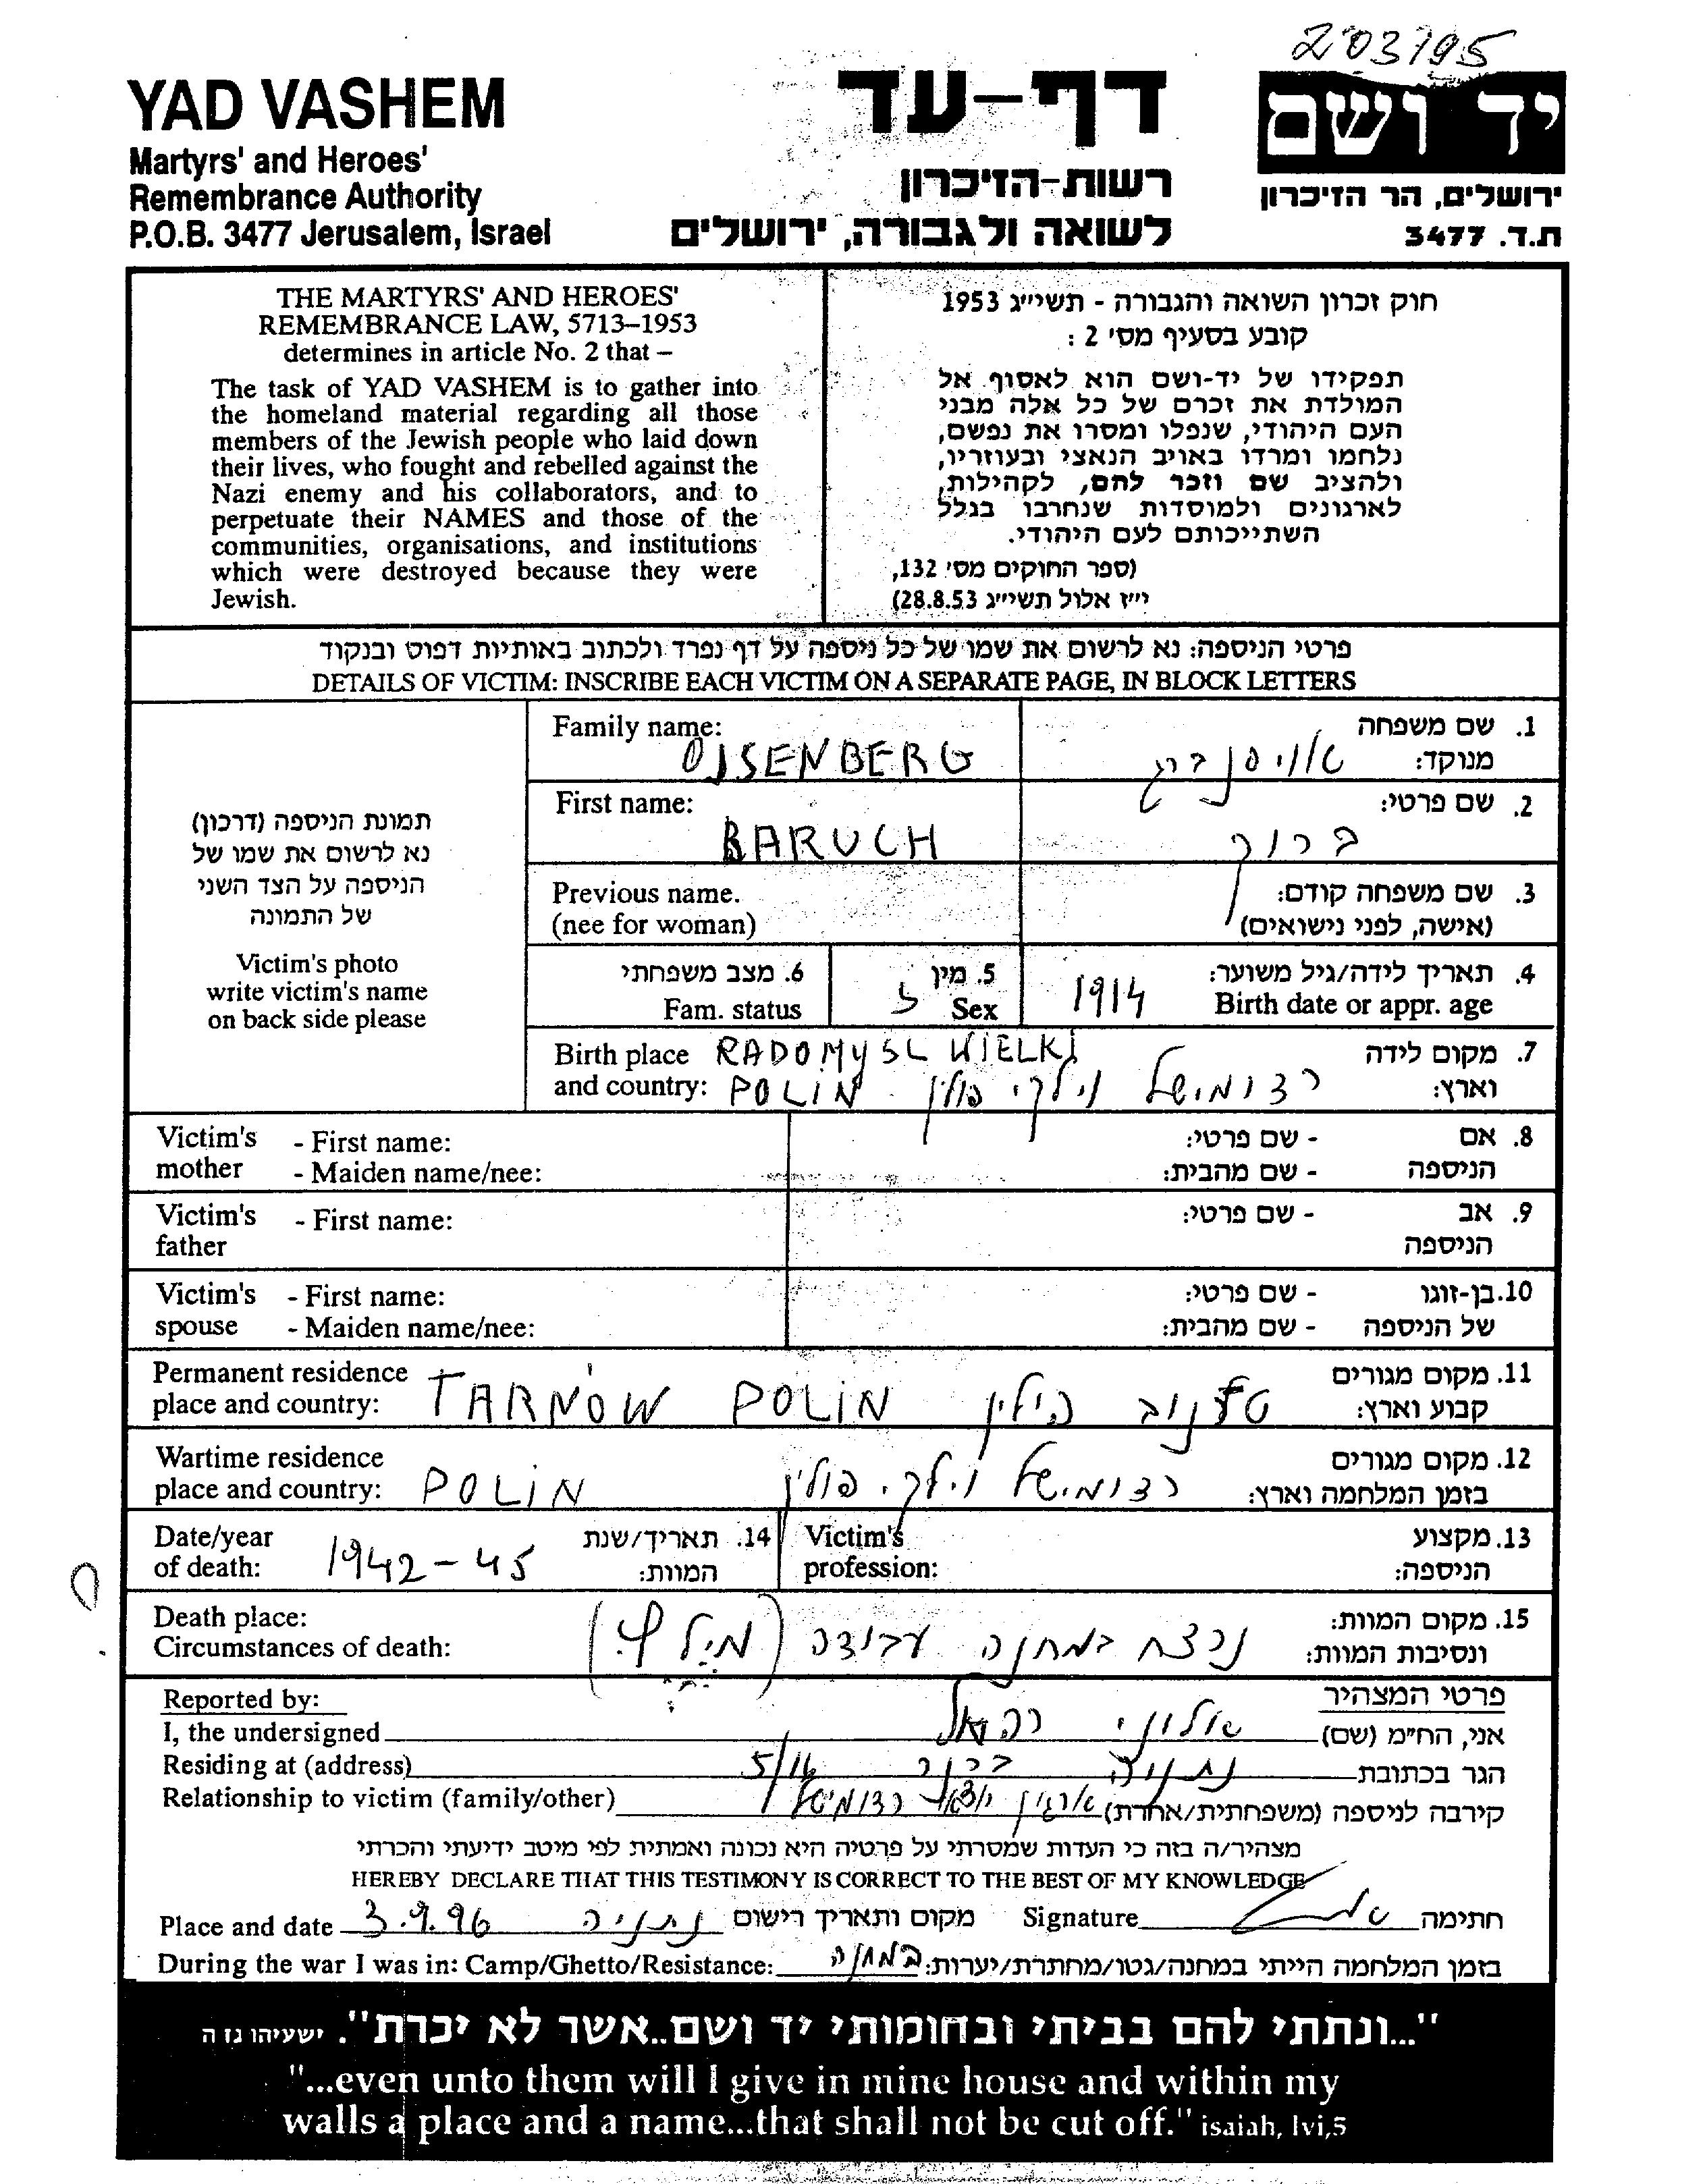 203795
YAD VASHEM
Martyrs' and Heroes'
Remembrance Authority
P.O.B. 3477 Jerusalem, Israel
דף-עד
רשות-הזיכרון
לשואה ולגבורה, ירושלים
יד ושם
ירושלים, הר הזיכרון
ת.ד. 3477
THE MARTYRS' AND HEROES'
REMEMBRANCE LAW, 5713–1953
determines in article No. 2 that –
The task of YAD VASHEM is to gather into
the homeland material regarding all those
members of the Jewish people who laid down
their lives, who fought and rebelled against the
Nazi enemy and his collaborators, and to
perpetuate their NAMES and those of the
communities, organisations, and institutions
which were destroyed because they were
Jewish.
חוק זכרון השואה והגבורה - תשי״ג 1953
קובע בסעיף מס׳ 2 :
תפקידו של יד-ושם הוא לאסוף אל
המולדת את זכרם של כל אלה מבני
העם היהודי, שנפלו ומסרו את נפשם,
נלחמו ומרדו באויב הנאצי ובעוזריו,
ולהציב שם וזכר להם, לקהילות,
לארגונים ולמוסדות שנחרבו בגלל
השתייכותם לעם היהודי.
(ספר החוקים מס׳ 132,
י״ז אלול תשי״ג 28.8.53)
פרטי הניספה: נא לרשום את שמו של כל ניספה על דף נפרד ולכתוב באותיות דפוס ובנקוד
DETAILS OF VICTIM: INSCRIBE EACH VICTIM ON A SEPARATE PAGE, IN BLOCK LETTERS
תמונת הניספה (דרכון)
נא לרשום את שמו של
הניספה על הצד השני
של התמונה
Victim's photo
write victim's name
on back side please
Family name: 1. שם משפחה
OJSENBERG אויסנברג מנוקד:
First name: 2. שם פרטי:
BARUCH ברוך
Previous name. 3. שם משפחה קודם:
(nee for woman) (אישה, לפני נישואים)
6. מצב משפחתי 5. מין 4. תאריך לידה/גיל משוער:
Fam. status Sex ז 1914 Birth date or appr. age
Birth place RADOMYSL WIELKI 7. מקום לידה
and country: POLIN רדומישל וילקי פולין וארץ:
Victim's - First name: - שם פרטי: 8. אם
mother - Maiden name/nee: - שם מהבית: הניספה
Victim's - First name: - שם פרטי: 9. אב
father הניספה
Victim's - First name: - שם פרטי: 10. בן-זוגו
spouse - Maiden name/nee: - שם מהבית: של הניספה
Permanent residence 11. מקום מגורים
place and country: TARNÓW POLIN טרנוב פולין קבוע וארץ:
Wartime residence 12. מקום מגורים
place and country: POLIN רדומישל וילקי פולין בזמן המלחמה וארץ:
Date/year 14. תאריך/שנת Victim's 13. מקצוע
of death: 1942-45 המוות: profession: הניספה:
Death place: 15. מקום המוות:
Circumstances of death: נרצח במחנה עבודה ונסיבות המוות:
Reported by: פרטי המצהיר
I, the undersigned אני, הח״מ (שם) אלוני
Residing at (address) הגר בכתובת נתניה 5/16
Relationship to victim (family/other) קירבה לניספה (משפחתית/אחרת) ארגון יוצאי רדומישל
מצהיר/ה בזה כי העדות שמסרתי על פרטיה היא נכונה ואמתית לפי מיטב ידיעתי והכרתי
HEREBY DECLARE THAT THIS TESTIMONY IS CORRECT TO THE BEST OF MY KNOWLEDGE
Place and date 3.9.96 נתניה מקום ותאריך רישום Signature חתימה
During the war I was in: Camp/Ghetto/Resistance: במחנה בזמן המלחמה הייתי במחנה/גטו/מחתרת/יערות:
"...ונתתי להם בביתי ובחומותי יד ושם..אשר לא יכרת". ישעיהו נז ה
"...even unto them will I give in mine house and within my
walls a place and a name...that shall not be cut off." isaiah, lvi,5